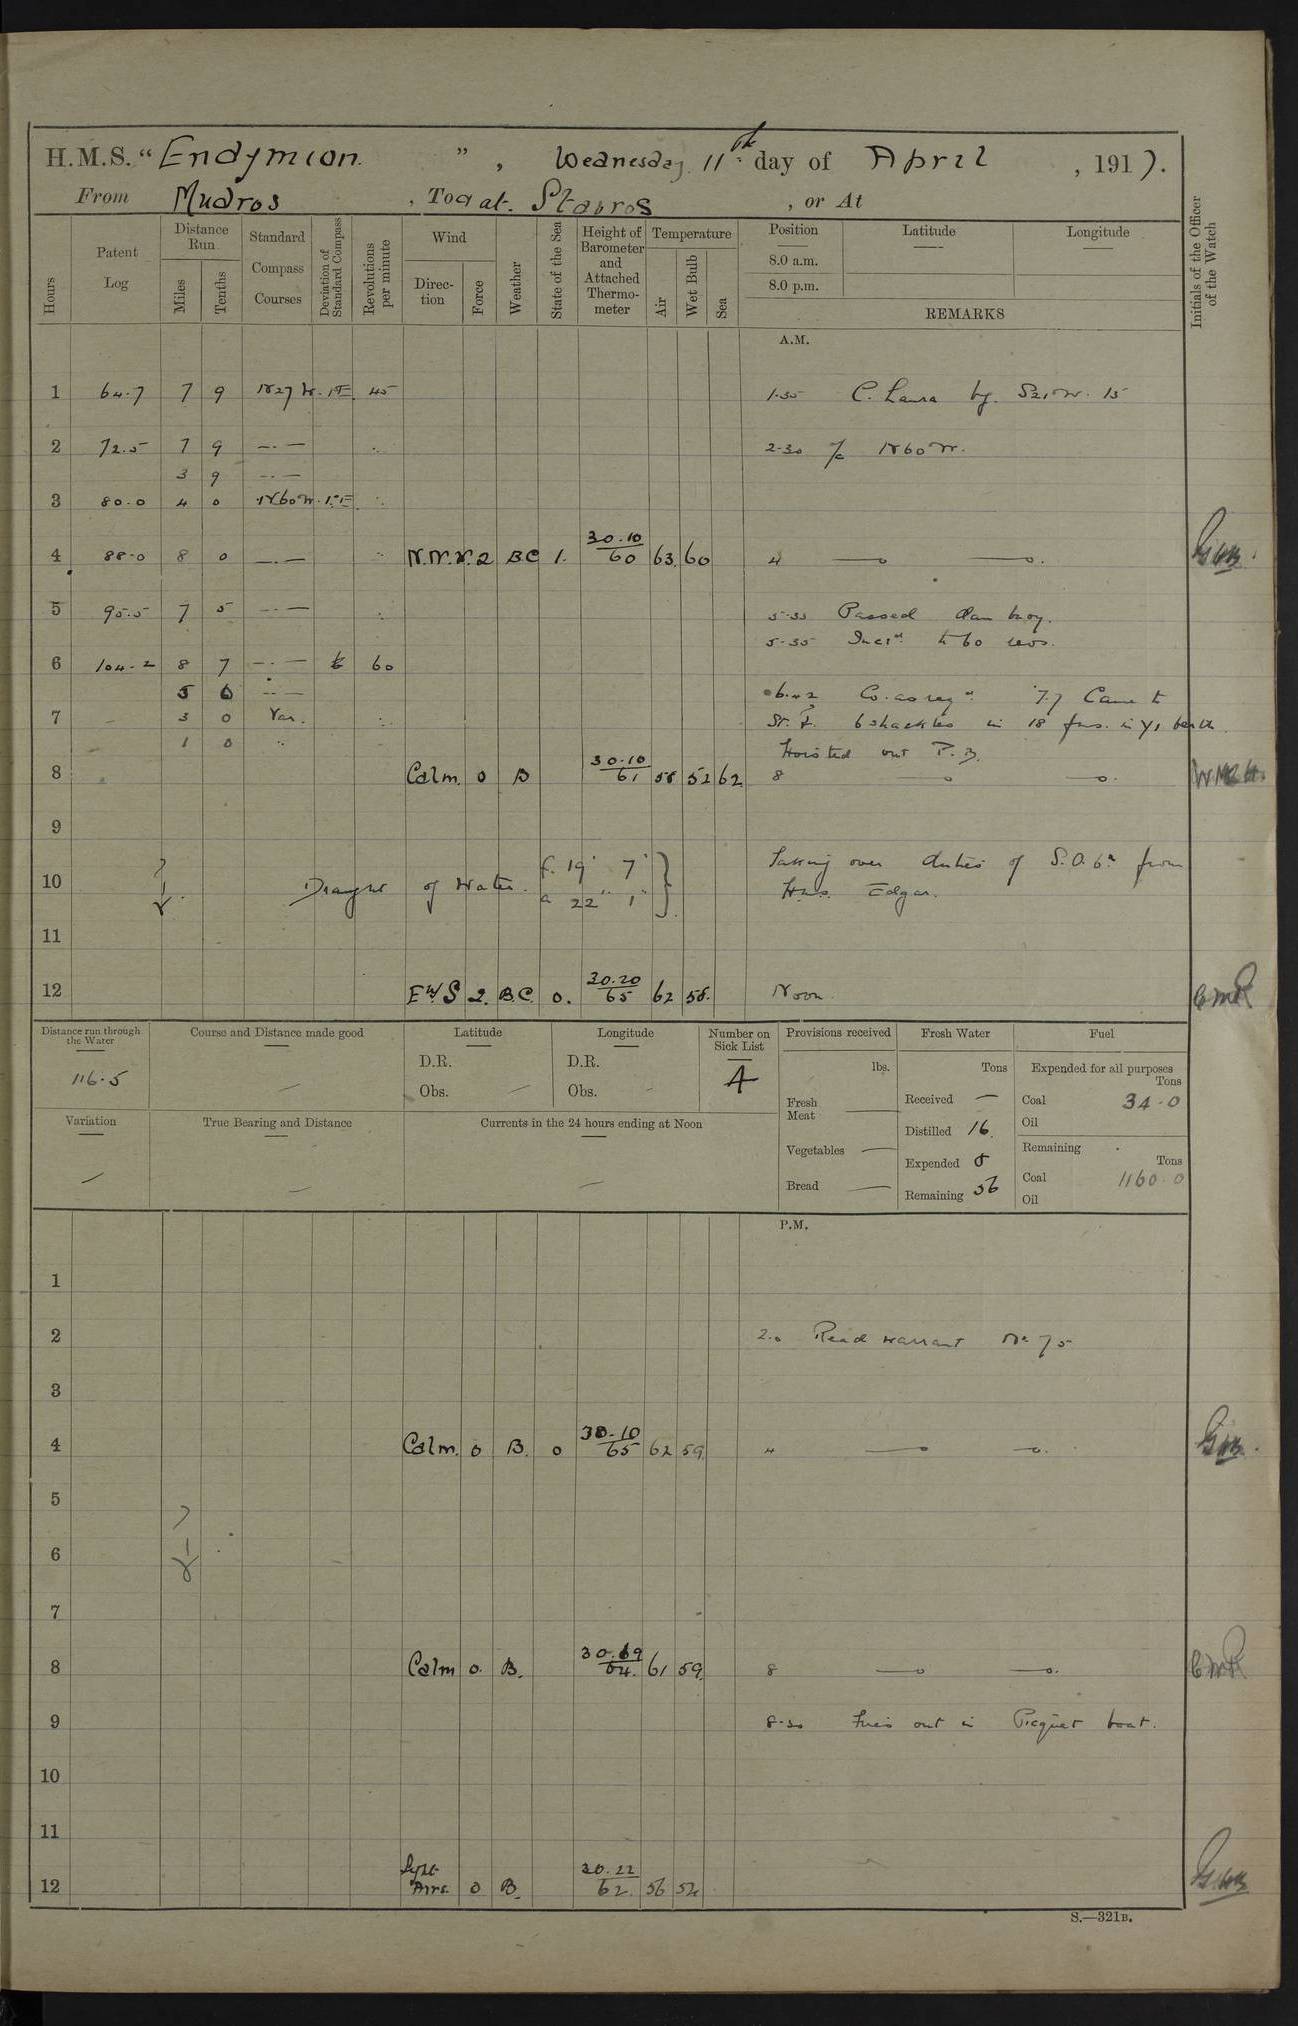 H.M.S. "Endymion.", Wednesday 11th day of April, 1917.
From Mudros, To & at. Stavros, or At
Hours
Patent Log
Distance Run
Miles
Tenths
Standard Compass Courses
Deviation of Standard Compass
Revolutions per minute
Wind
Direction
Force
Weather
State of the Sea
Height of Barometer and Attached Thermometer
Temperature
Air
Wet Bulb
Sea
Position
Latitude
Longitude
8.0 a.m.
8.0 p.m.
REMARKS
Initials of the Officer of the Watch
A.M.
1 64.7 7 9 N27W. 1°E. 45 C. Laura bg. S21W. 15
2 72.5 7 9 2-30 a/c N60W.
3 9
3 80.0 4 0 N60W. 1°E
4 88.0 8 0 N.W.N. 2 B.C 1. 30.10/60 63. 60 4
5 95.5 7 5 Passed Dan buoy.
5-35 Incsd. to 60 revs.
6 104.2 8 7 60
5 6 6.42 Co. as reqd. 7.7 Came to
7 3 0 Var. 6 shackles in 18 fms. in Y1 berth.
1 0 Hoisted out P.B.
8 Calm. 0 B 30.10/61 58 52 62 8
9
Taking over duties of S.O. 6th from
10 Draught of Water. f. 19' 7" a 22" 1" H.M.S. Edgar.
11
12 E by S 2. B.C. 0. 30.20/65 62 58. Noon
Distance run through the Water
116.5
Course and Distance made good
Latitude
D.R.
Obs.
Longitude
D.R.
Obs.
Number on Sick List
4
Provisions received
lbs.
Fresh Meat
Vegetables
Bread
Fresh Water
Tons
Received —
Distilled 16.
Expended 8
Remaining 56
Fuel
Expended for all purposes
Tons
Coal 34.0
Oil
Remaining
Tons
Coal 1160.0
Oil
Variation
True Bearing and Distance
Currents in the 24 hours ending at Noon
P.M.
1
2 2.0 Read warrant No 75
3
4 Calm. 0 B. 0 30.10/65 62 59. 4
5
6
7
8 Calm 0. B. 30.19/64. 61 59. 8
9 8-30 Fires out in Picquet boat.
10
11
12 Light Airs. 0 B. 30.22/62. 56 54
S.—321B.